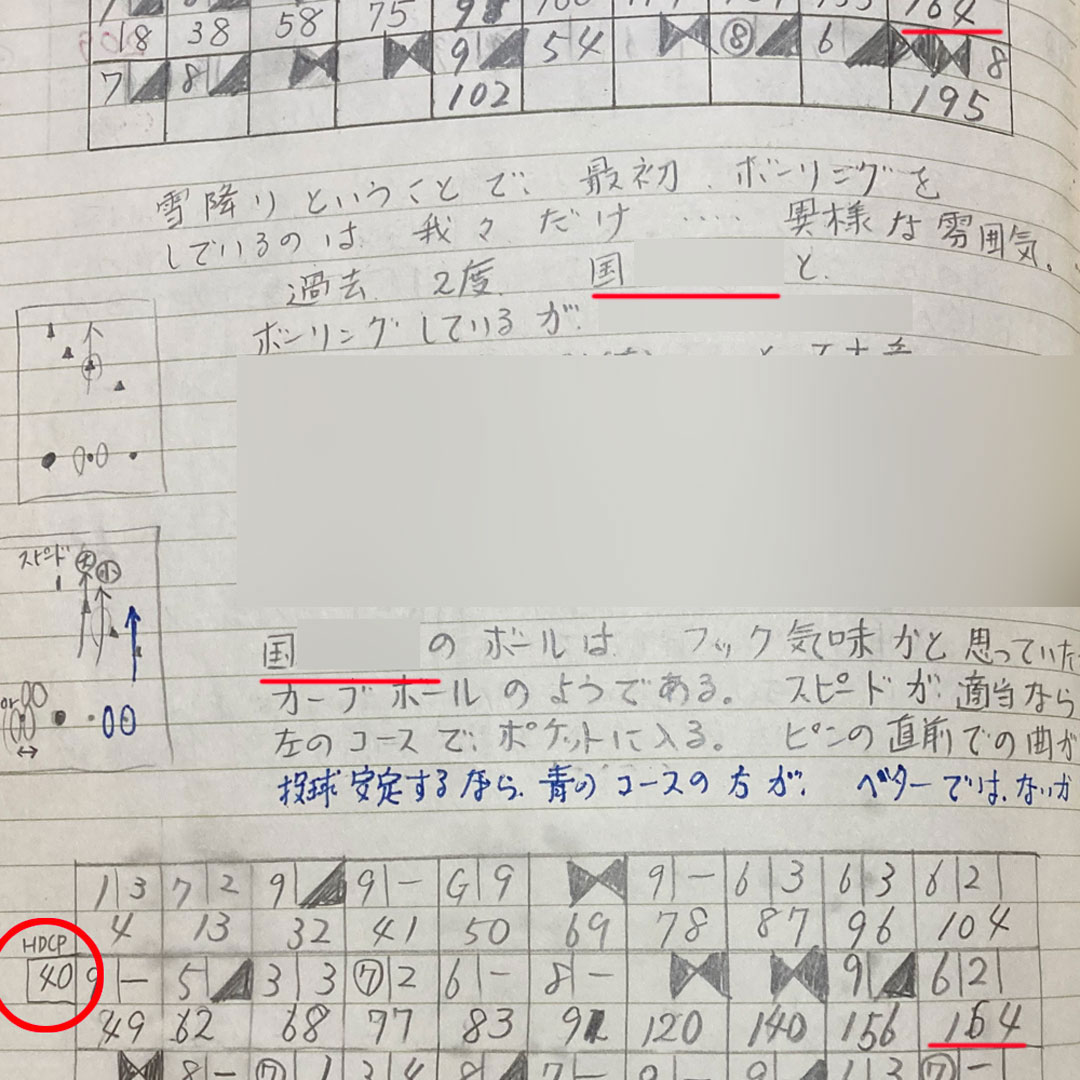 18 38 58 75 164
7 8 9 54 ⑧ 6 8
102 195
雪降りということで、最初、ボーリングを
しているのは、我々だけ‥‥異様な雰囲気。
過去、2度、国 と、
ボーリングしているが、
スピード
大 小
or
国 のボールは、フック気味かと思っていた
カーブボールのようである。スピードが適当なら
左のコースで、ポケットに入る。ピンの直前での曲が
投球安定するなら、青のコースの方が、ベターでは、ないか
1 3 7 2 9 9 - G 9 9 - 6 3 6 3 6 2
4 13 32 41 50 69 78 87 96 104
HDCP
40 9 - 5 3 3 ⑦ 2 6 - 8 - 9 6 2
49 62 68 77 83 91 120 140 156 164
8 - ⑦ 1 3 4 8 7 - 9 - 9 1 3 ⑦ -